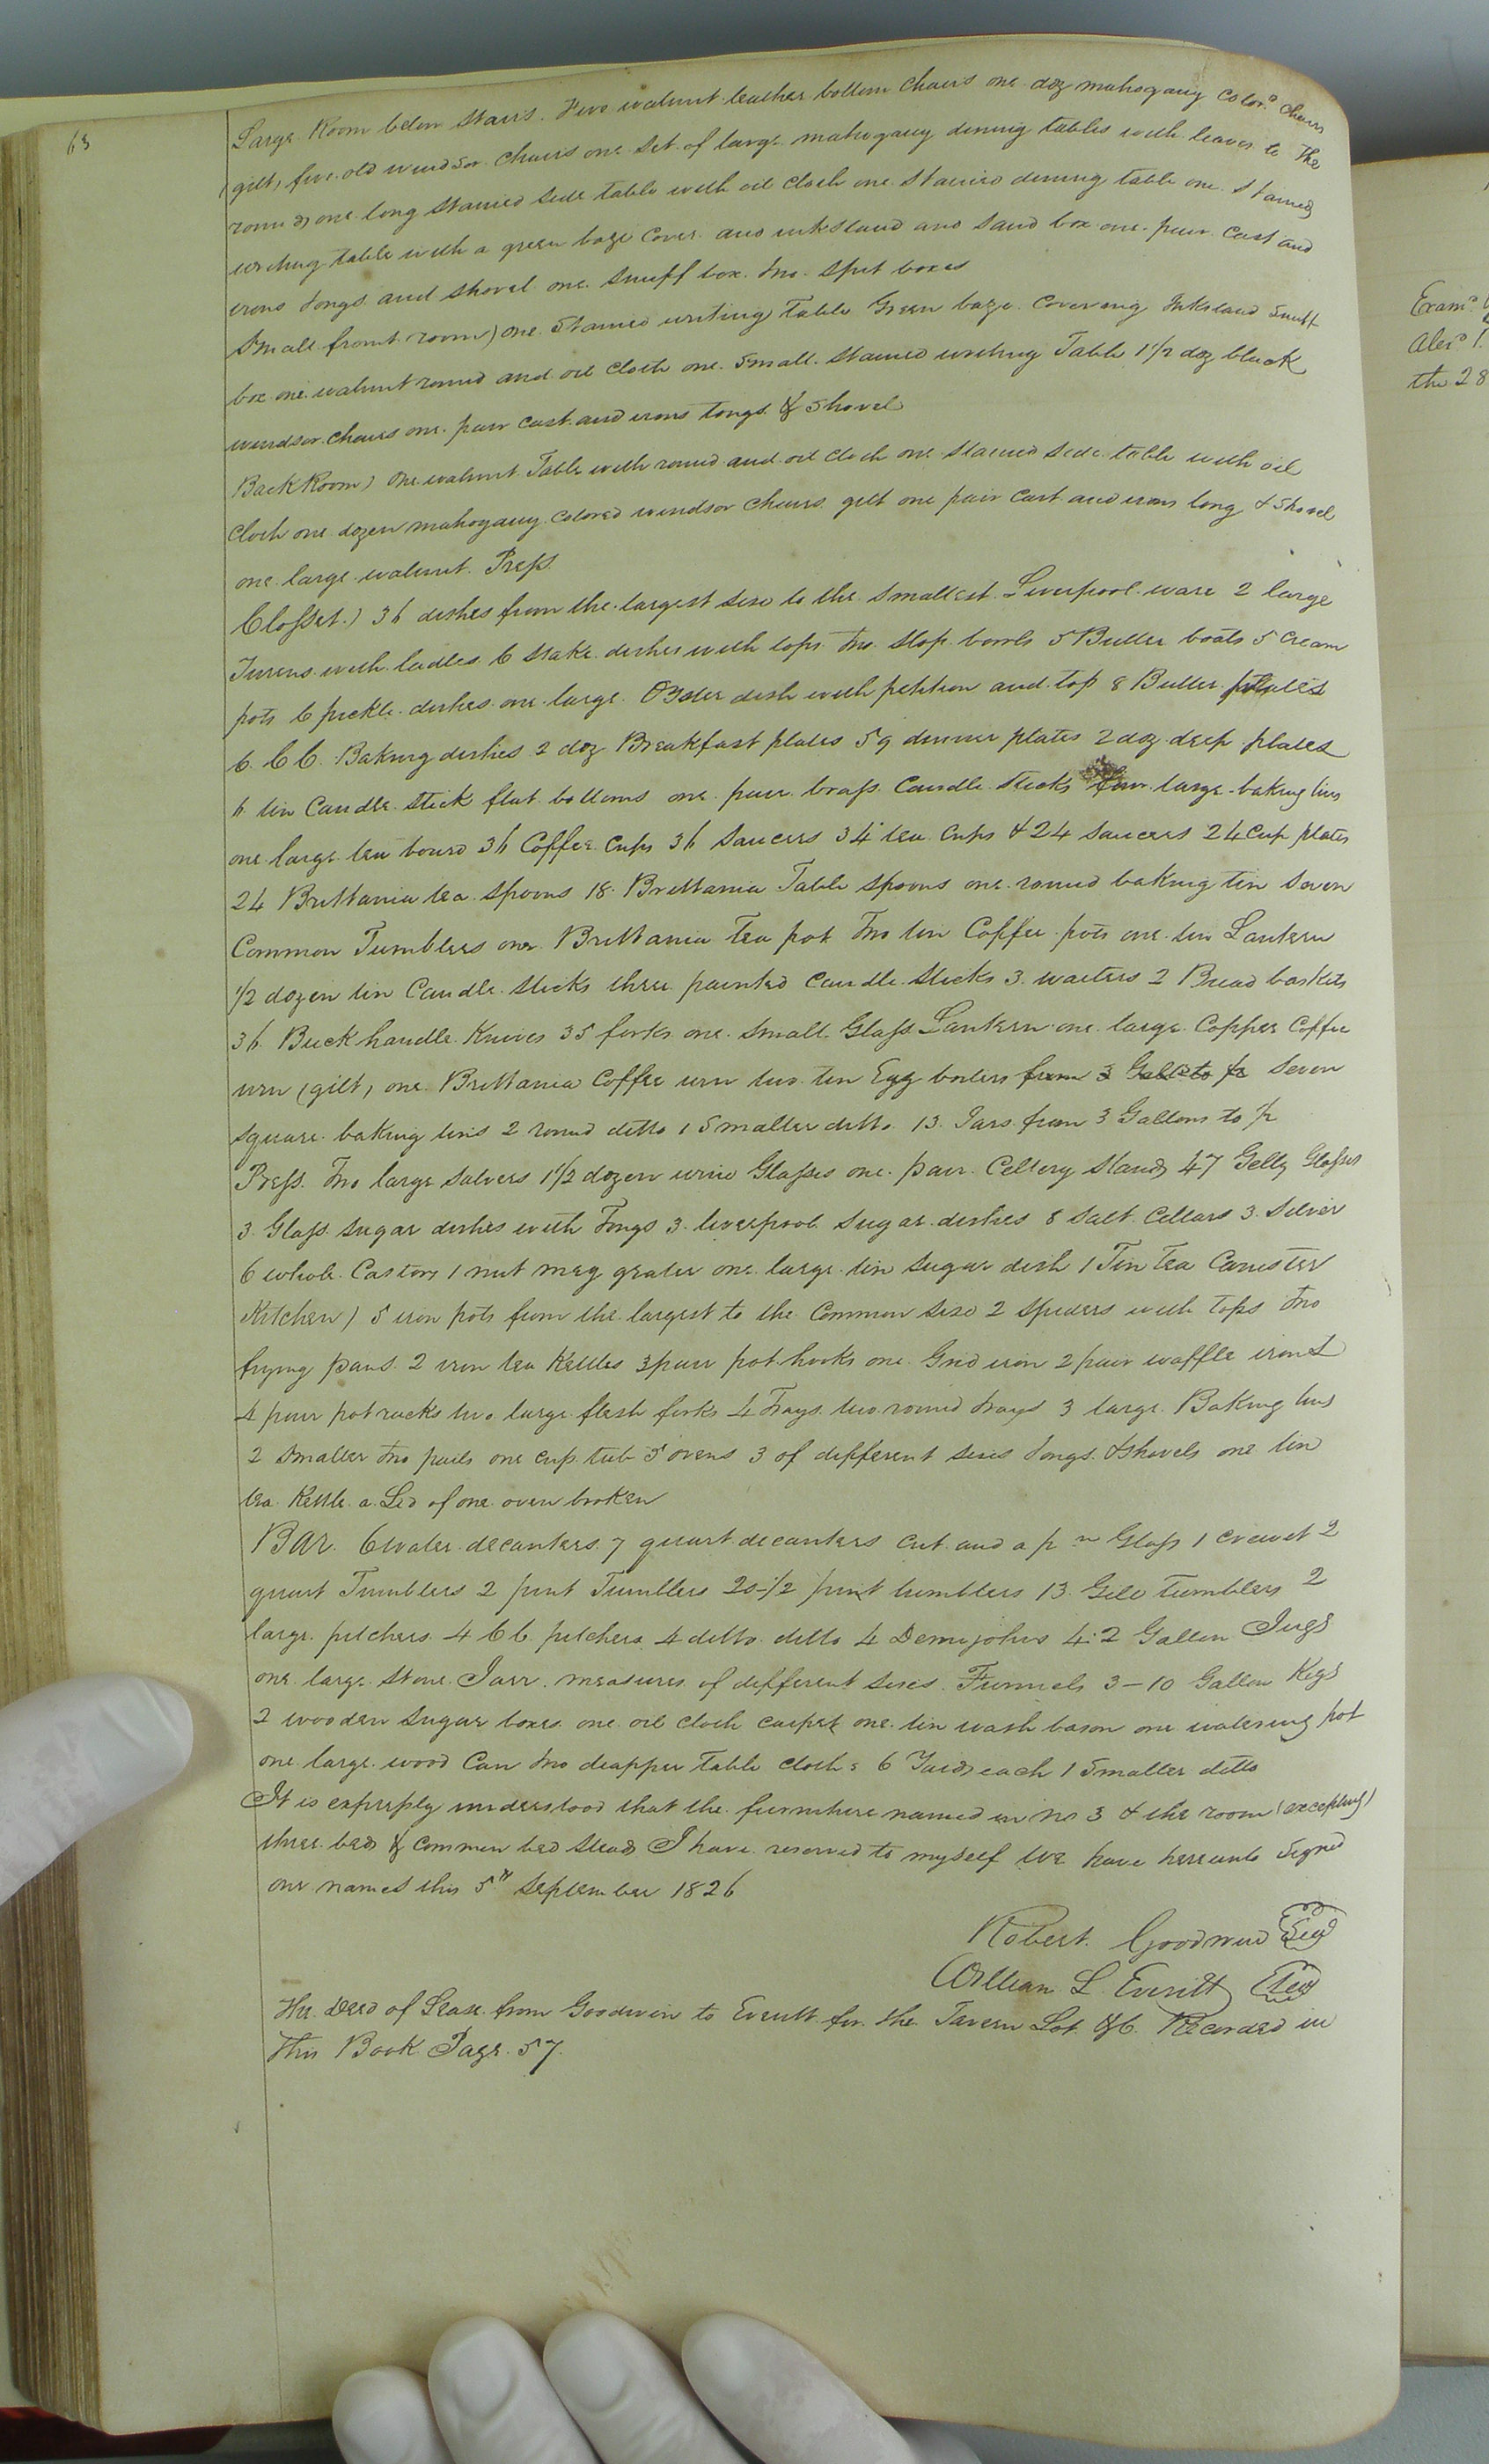 63
Large Room below Stairs. Two walnut leather bottom chairs one doz mahogany Colord Chairs
(gilt, five old windsor Chairs one Set of large mahogany dining tables with leaves to the
round, one long Stained Side table with oil Cloth one Stained dining table one Stained
writing table with a green baze Cover and inkstand and Sand box one pair Cast and
irons Tongs and Shovel one Snuff box Two Spit boxes
Small front room) one Stained writing Table Green baze Covering Inkstand Snuff
box one walnut round and oil Cloth one Small Stained writing Table 1 1/2 doz black
windsor Chairs one pair Cast and irons tongs & Shovel
Back Room) One walnut Table with round and oil Cloth one Stained Side table with oil
Cloth one dozen mahogany Colored windsor Chairs gilt one pair Cast and irons tong & Shovel
one large walnut Press
Closset.) 36 dishes from the largest Size to the Smallest Liverpool ware 2 large
Turens with ladles 6 Stake dishes with tops Two Slop bowls 5 Butter boats 5 Cream
pots 6 pickle dishes one large Oyster dish with petition and top 8 Butter plates
6 C C Baking dishes 2 doz Breakfast plates 59 dinner plates 2 doz deep plates
6 tin Candle Stick flat bottoms one pair brass Candle Sticks four large baking tins
one large tea board 36 Coffee Cups 36 Saucers 34 tea Cups & 24 Saucers 24 Cup plates
24 Brittania tea Spoons 18 Brittania Table Spoons one round baking tin Seven
Common Tumblers one Brittania Tea pot Two tin Coffee pots one tin Lantern
1/2 dozen tin Candle Sticks three painted Candle Sticks 3 waiters 2 Bread baskets
36 Buck handle Knives 35 forks one Small Glass Lantern one large Copper Coffee
urn (gilt, one Brittania Coffee urn two tin Egg boilers from 3 Galls to 1/2 Seven
Square baking tins 2 round ditto 1 Smaller ditto 13 Jars from 3 Gallons to 1/2
Press. Two large Salvers 1 1/2 dozen wine Glasses one pair Cellery Stands 47 Gelly Glasses
3 Glass Sugar dishes with Tongs 3 liverpool Sugar dishes 8 Salt Cellars 3 Silver
6 whole Castors 1 nut meg grater one large tin Sugar dish 1 Tin Tea Canister
Kitchen) 5 iron pots from the largest to the Common Size 2 Spiders with Tops Two
frying pans 2 iron tea Kettles 3 pair pot hooks one Grid iron 2 pair waffle irons
4 pair pot racks two large flesh forks 4 Trays two round trays 3 large Baking tins
2 Smaller two pails one Cup tub 5 ovens 3 of different Sises Tongs & Shovels one tin
tea Kettle a Led of one oven broken
BAR. 6 water decanters 7 quart decanters Cut and a Glass 1 Crewet 2
quart Tumblers 2 pint Tumblers 20-1/2 pint tumblers 13 Gill Tumblers 2
large pitchers 4 C C pitchers 4 ditto ditto 4 Demijohns 4: 2 Gallon Jugs
one large Stone Jarr measures of different Sises Funnels 3-10 Gallon Kegs
2 wooden Sugar boxes one oil Cloth Carpet one tin wash bason one watering pot
one large wood Can two deapper Table Cloths 6 Yards each 1 Smaller ditto
It is expressly understood that the furniture named in no 3 & the room (excepting)
three beds & Common bed Steads I have reserved to myself We have hereunto Signed
our names this 5th September 1826
Robert Goodwin Seal
William L Everitt Seal
The Deed of Lease from Goodwin to Everitt for the Tavern Lot &C. Recorded in
This Book Page 57.
Examd
Alexr
the 28